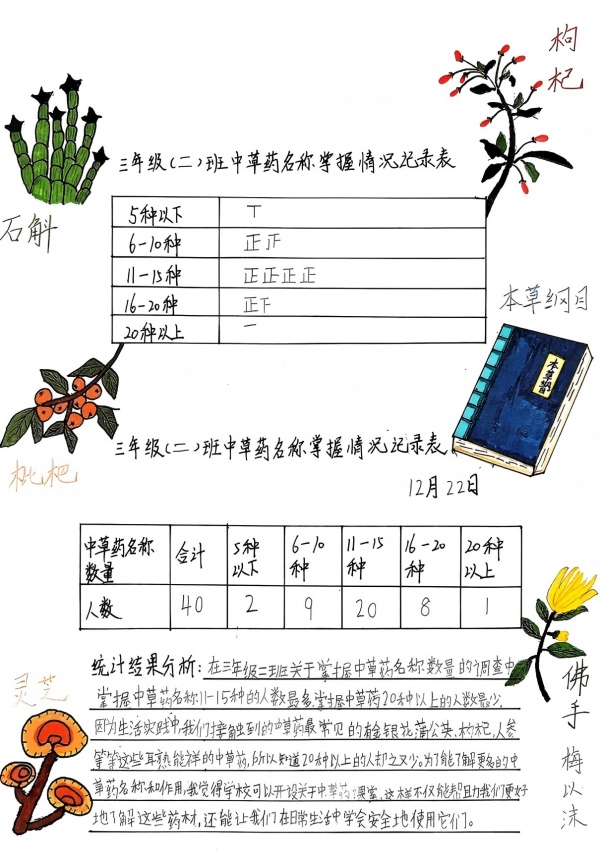 枸
杞
三年级(二)班中草药名称掌握情况记录表
石斛
5种以下 丅
6-10种 正正
11-15种 正正正正
16-20种 正下
20种以上 一
本草纲目
本草纲目
枇杷
三年级(二)班中草药名称掌握情况记录表
12月22日
中草药名称数量 合计 5种以下 6-10种 11-15种 16-20种 20种以上
人数 40 2 9 20 8 1
灵芝
佛手
梅以沫
统计结果分析:在三年级二班关于掌握中草药名称数量的调查中
掌握中草药名称11-15种的人数最多,掌握中草药20种以上的人数最少.
因为生活实践中,我们接触到的中草药最常见的有金银花蒲公英、枸杞、人参
等等这些耳熟能详的中草药,所以知道20种以上的人却又少.为了能了解更多的中
草药名称和作用,我觉得学校可以开设关于中草药课堂,这样不仅能帮助我们更好
地了解这些药材,还能让我们在日常生活中学会安全地使用它们。